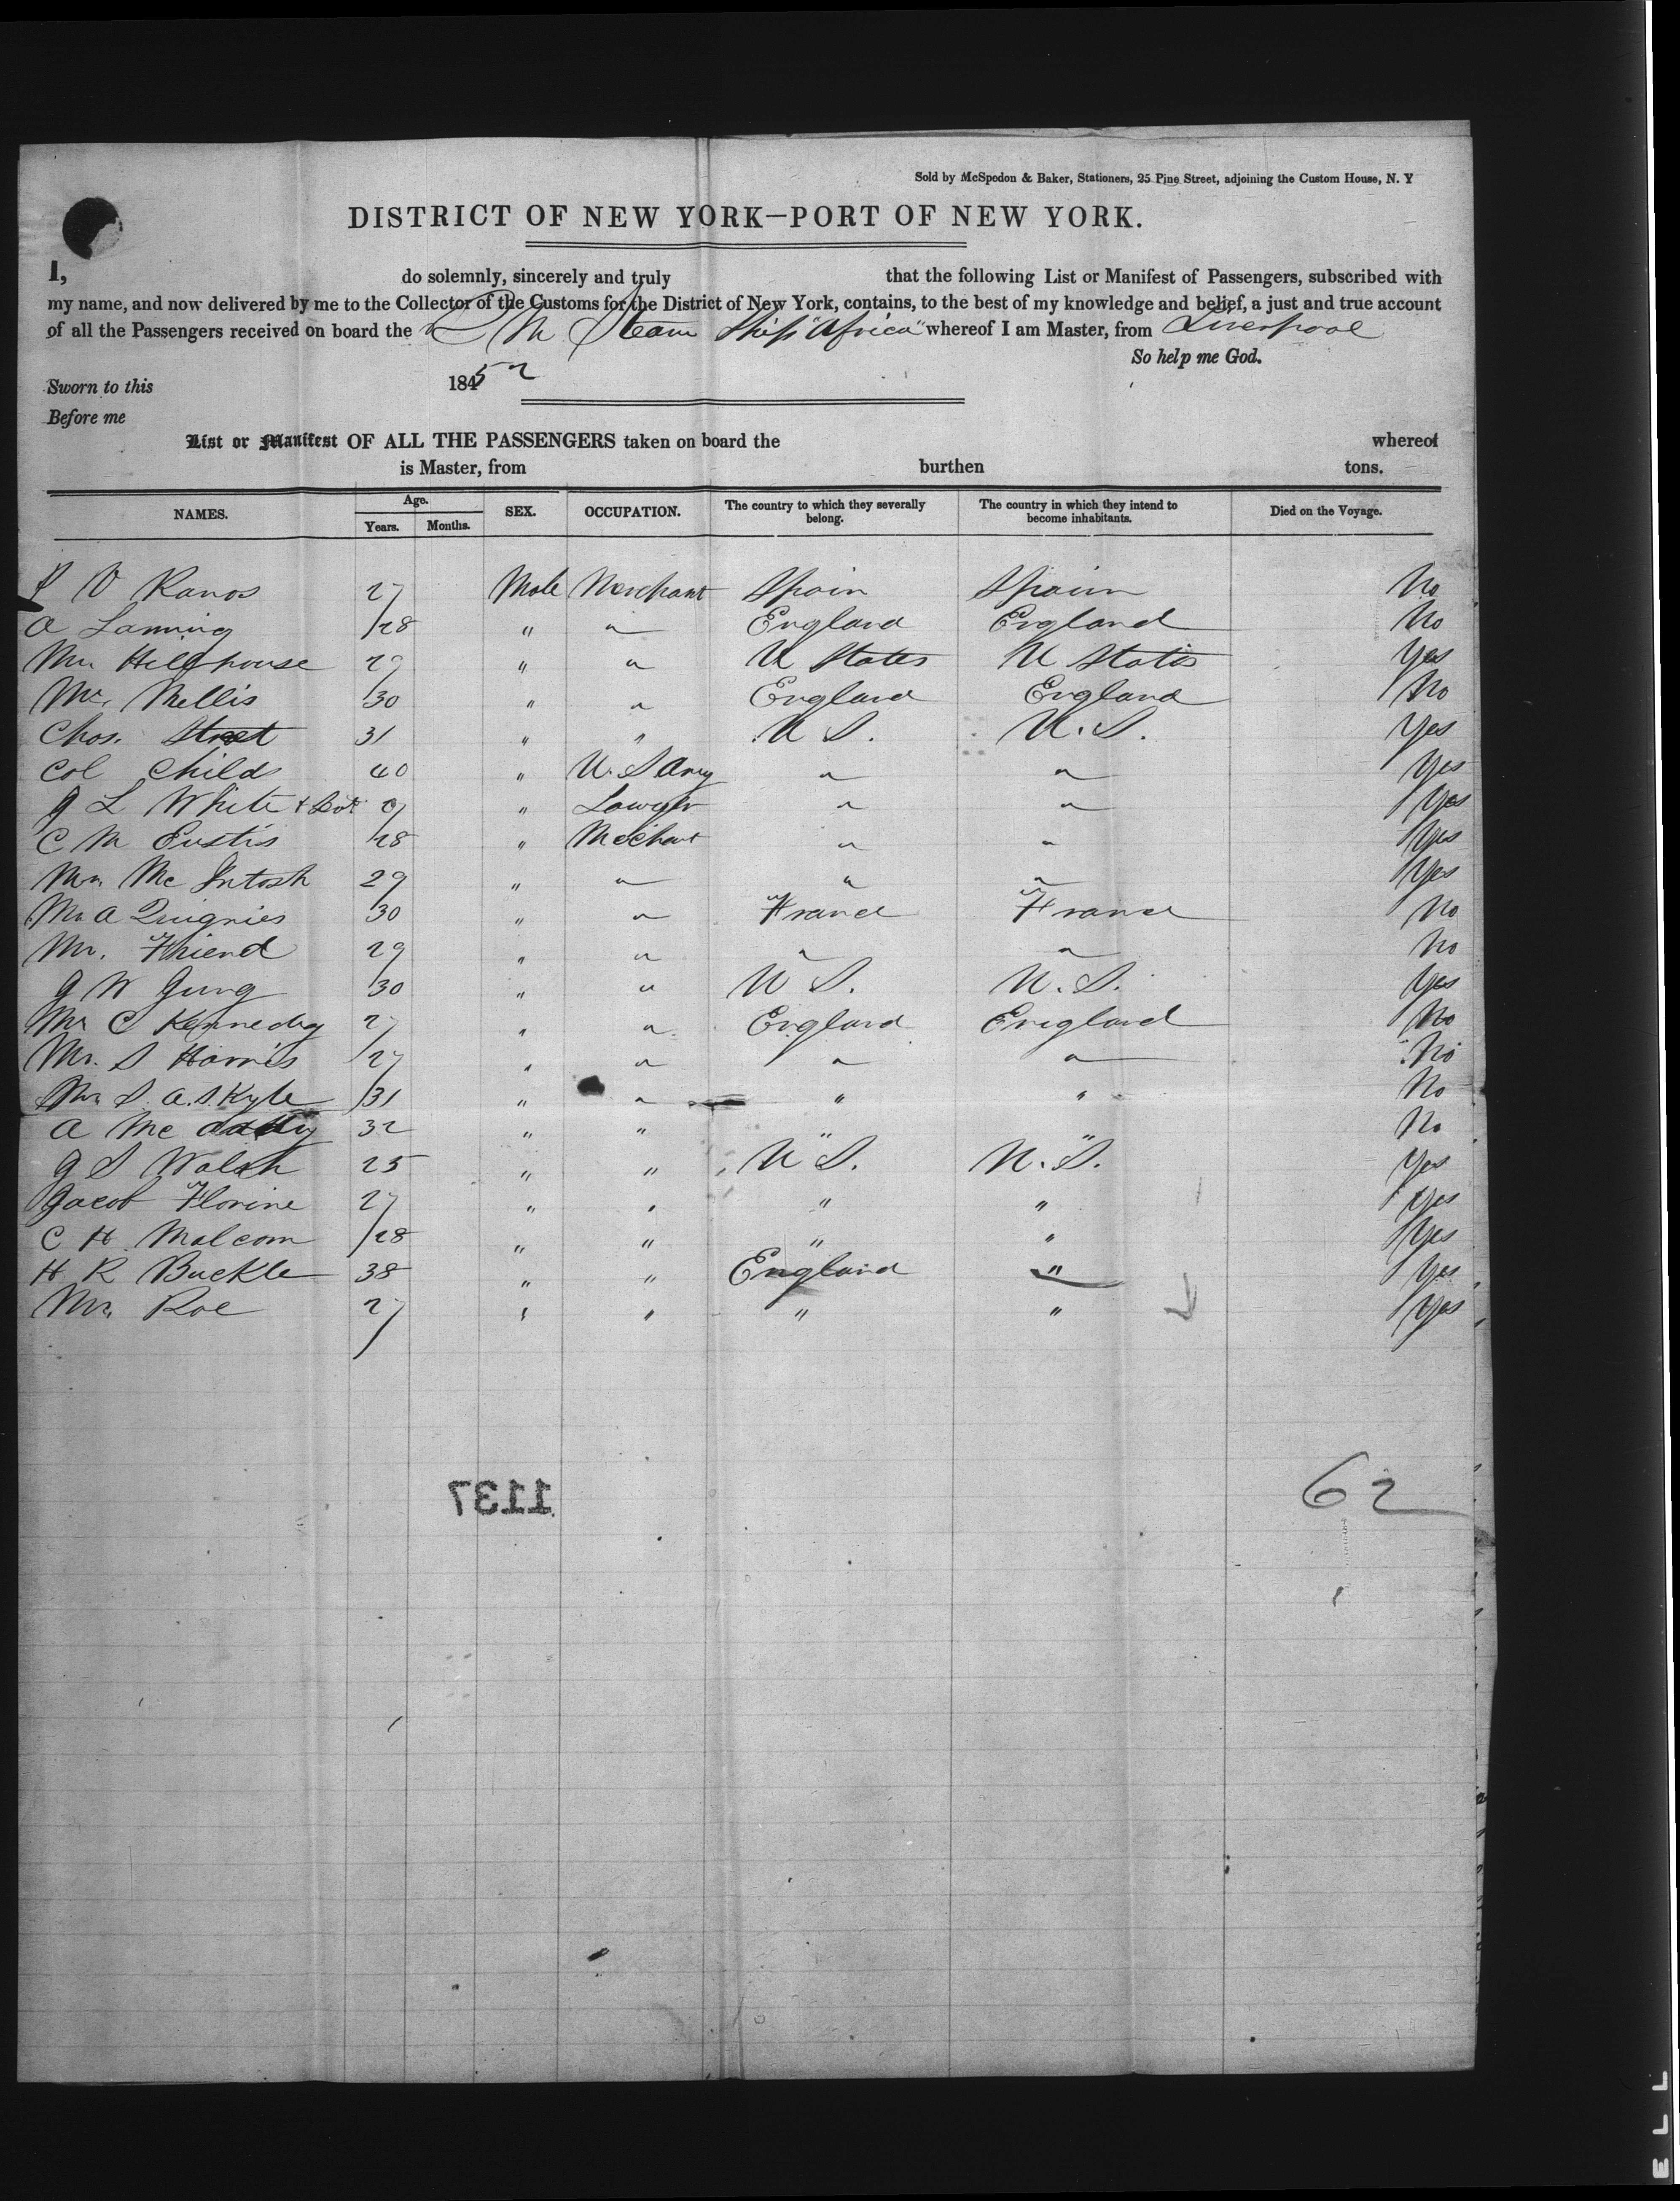 Sold by McSpedon & Baker, Stationers, 25 Pine Street, adjoining the Custom House, N. Y
DISTRICT OF NEW YORK—PORT OF NEW YORK.
I, do solemnly, sincerely and truly that the following List or Manifest of Passengers, subscribed with
my name, and now delivered by me to the Collector of the Customs for the District of New York, contains, to the best of my knowledge and belief, a just and true account
of all the Passengers received on board the R M Steam Ship "Africa" whereof I am Master, from Liverpool
So help me God.
Sworn to this 1852
Before me
List or Manifest OF ALL THE PASSENGERS taken on board the whereof
is Master, from burthen tons.
NAMES. Age. Years. Months. SEX. OCCUPATION. The country to which they severally belong. The country in which they intend to become inhabitants. Died on the Voyage.
V Ranos 27 Male Merchant Spain Spain No
A Lanning 28 " " England England No
Mr. Hillhouse 29 " " U States U States Yes
Mr. Mellis 30 " " England England No
Chas. Street 31 " " U S. U. S. Yes
Col Childs 40 " U. S Army " " Yes
G L White + " Lawyer " " Yes
C M Eustis 28 " Mechant " " Yes
Mr. Mc Intosh 29 " " " " Yes
Mr A Quignies 30 " " France France No
Mr. Friend 29 " " " " No
G W Gung 30 " " U S. U. S. Yes
Mr C Kennedy 27 " " England England No
Mr. S Harris 27 " " " " No
Mr S. A. S. Kyle 31 " " " " No
A Mc 32 " " " " No
G S Walsh 25 " " U S. U. S. Yes
Jacob Florine 27 " " " " Yes
C H Malcom 28 " " " " Yes
H R Buckle 38 " " England " Yes
Mr. Roe 27 " " " " Yes
1137
62
E L L